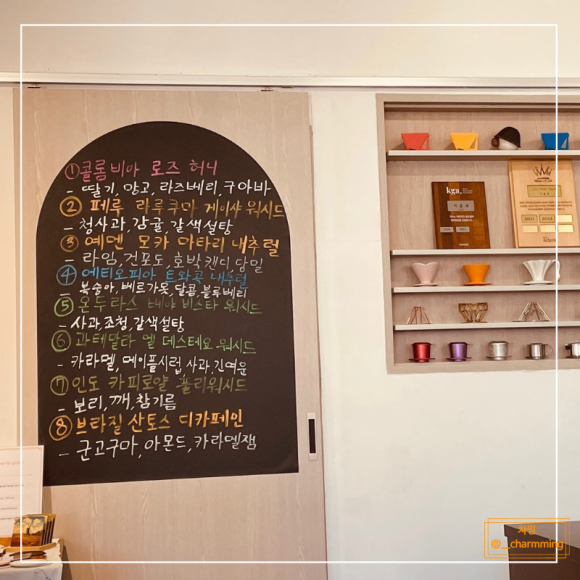 ①콜롬비아 로즈 허니
- 딸기, 망고, 라즈베리, 구아바
② 페루 라루쿠마 게이샤 워시드
- 청사과, 감귤, 갈색설탕
③ 예멘 모카 마타리 내추럴
- 라임, 건포도, 호박캔디, 당밀
④ 에티오피아 내추럴
복숭아, 베르가못, 달콤, 블루베리
⑤ 온두라스 비스타 워시드
- 사과, 조청, 갈색설탕
⑥ 과테말라 엘 데스테요 워시드
- 카라멜, 메이플시럽, 사과, 긴여운
⑦ 인도 카피로얄 풀리워시드
- 보리, 깨, 참기름
⑧ 브라질 산토스 디카페인
- 군고구마, 아몬드, 카라멜잼
kga.
차밍
@__charmming